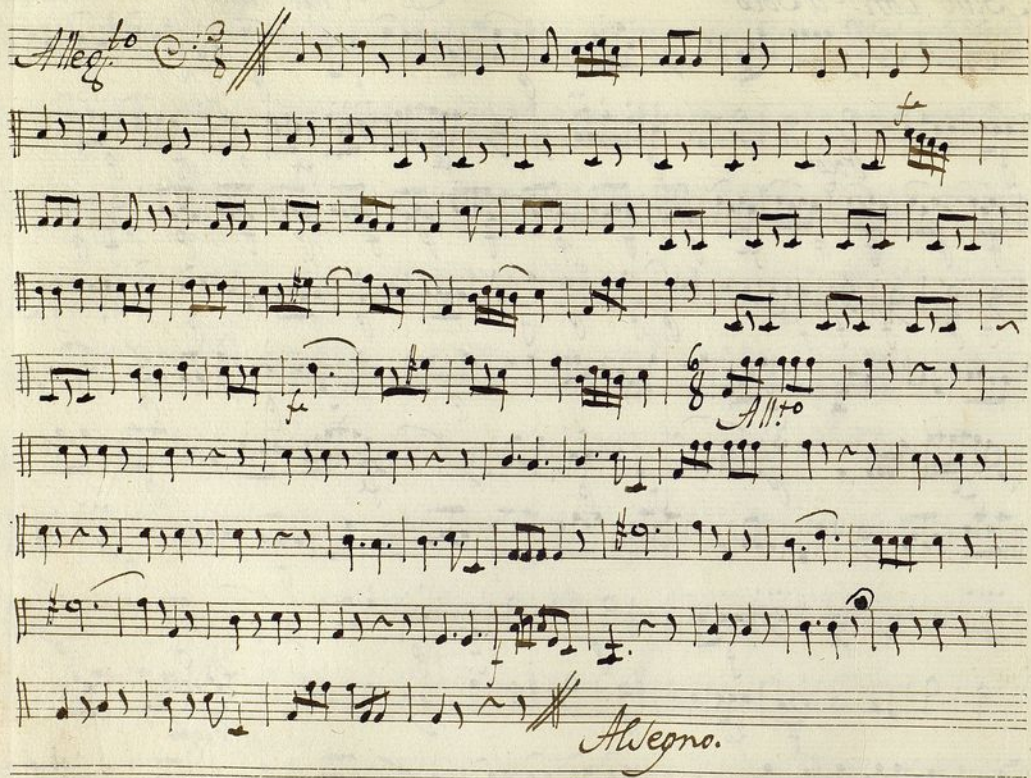 Allegto 3/8
fe
fe
6/8
Allto
f
Al Segno.